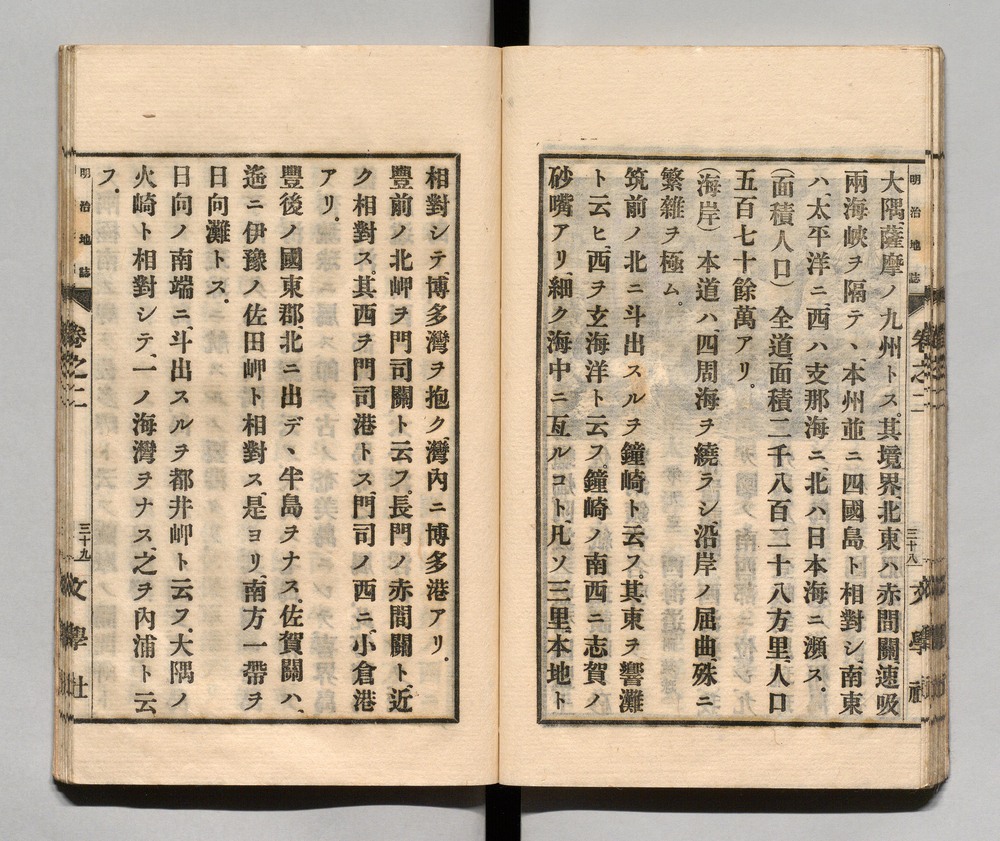 明治地誌 卷之二 三十八 文學社
大隅、薩摩ノ九州トス。其境界、北東ハ赤間關、速吸
兩海峽ヲ隔テ、本州並ニ四國島ト相對シ、南東
ハ、太平洋ニ、西ハ支那海ニ、北ハ日本海ニ瀕ス。
(面積人口) 全道、面積二千八百二十八方里、人口
五百七十餘萬アリ。
(海岸) 本道ハ、四周海ヲ繞ラシ、沿岸ノ屈曲、殊ニ
繁雜ヲ極ム。
筑前ノ北ニ斗出スルヲ鐘崎ト云フ。其東ヲ響灘
ト云ヒ、西ヲ玄海洋ト云フ。鐘崎ノ南西ニ志賀ノ
砂嘴アリ、細ク海中ニ亙ルコト、凡ソ三里、本地ト
相對シテ、博多灣ヲ抱ク、灣內ニ博多港アリ。
豐前ノ北岬ヲ門司關ト云フ。長門ノ赤間關ト、近
ク相對ス。其西ヲ門司港トス、門司ノ西ニ、小倉港
アリ。
豐後ノ國東郡、北ニ出デ、半島ヲナス。佐賀關ハ、
遙ニ伊豫ノ佐田岬ト相對ス、是ヨリ、南方一帶ヲ
日向灘トス。
日向ノ南端ニ、斗出スルヲ都井岬ト云フ、大隅ノ
火崎ト相對シテ、一ノ海灣ヲナス、之ヲ內浦ト云
フ。
明治地誌 卷之二 三十九 文學社